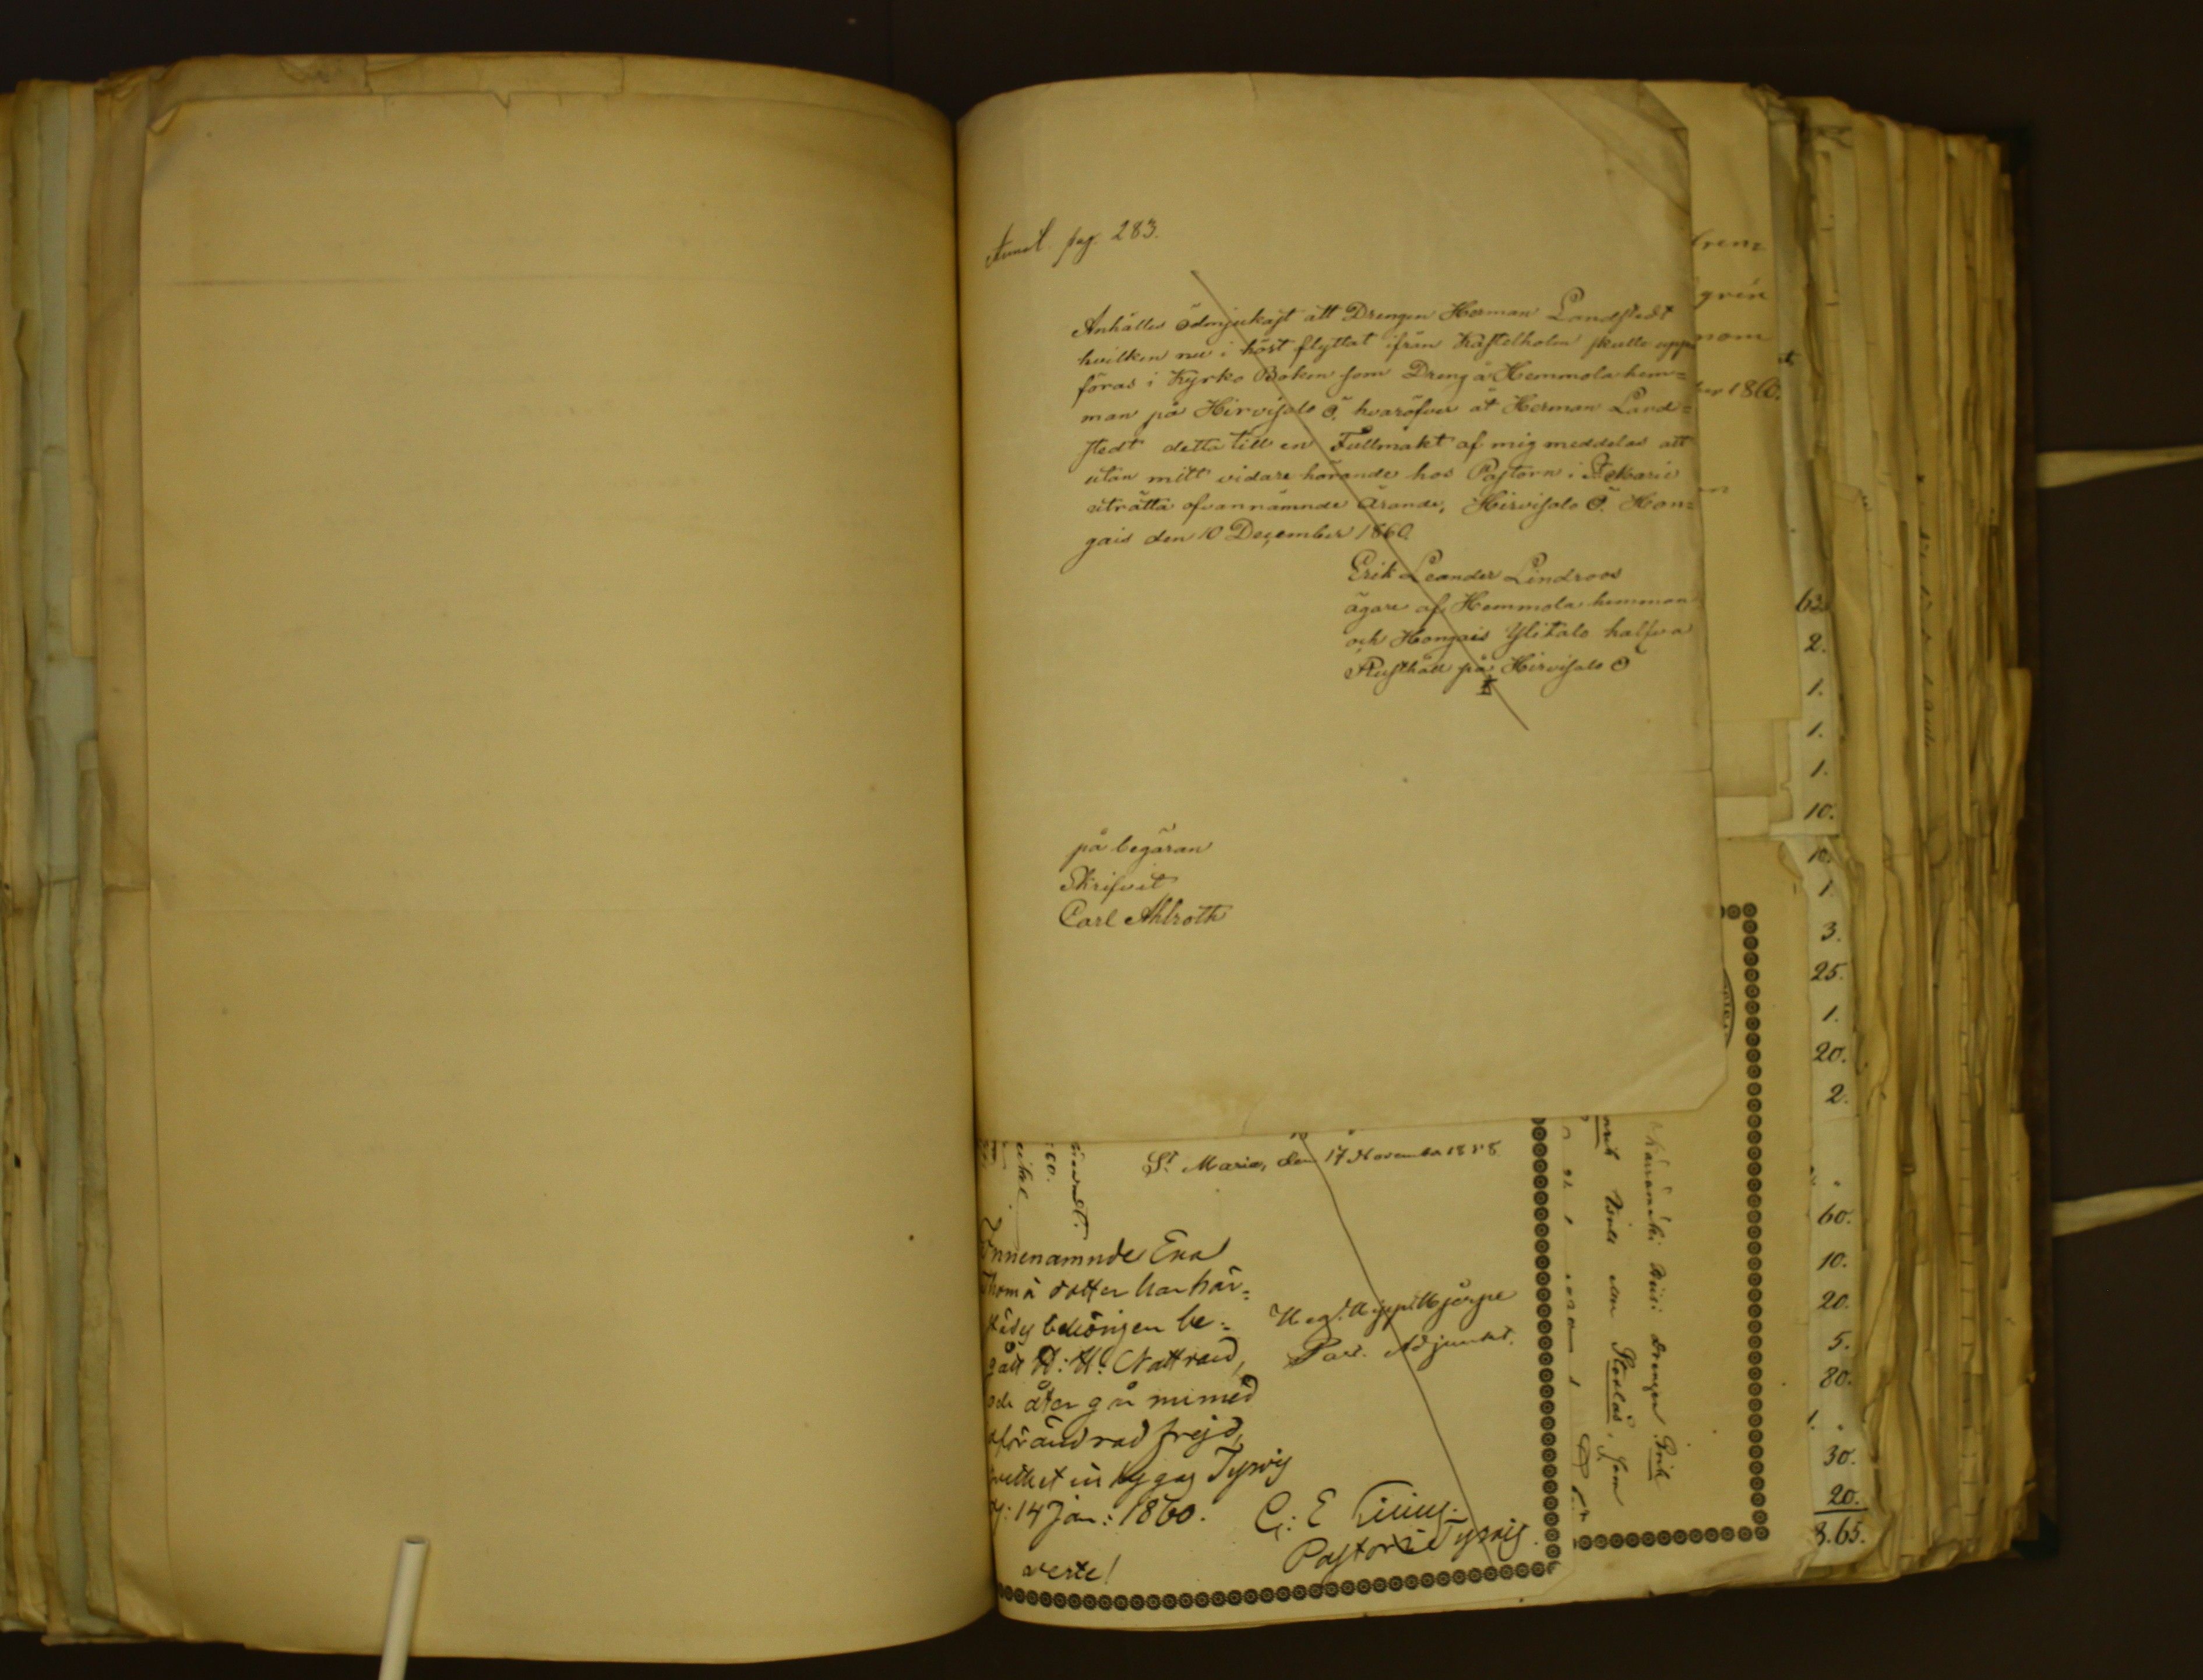 pag. 283.
Anhålles ödmjukast att Drengen Herman Landstedt
hvilken nu i höst flyttat ifrån Kastelholm skulle upp
föras i Kyrko Boken som Dreng å Hemmola hem=
man på Hirvisalo Ö. hvaröfver åt Herman Land=
stedt detta till en Fullmakt af mig meddelas att
utan mitt vidare hörande hos Pastorn i St Marie
uträtta ofvannämnde ärande, Hirvisalo Ö. Hon=
gais den 10 December 1860.
Erik Leander Lindroos
ägare af Hemmola hemman
och Hongais Ylitalo halfva
Rusthåll på Hirvisalo Ö
på begäran
Skrifvit
Carl Ahlroth
St Marie, den 17 November 1858.
Innenamnde Eva
Thomä dotter har här=
städs behörigen be=
gått H: H: Nattvard,
och åter går nu med
oförändrad frejd,
hvilket intygas Tyrvis
d: 14 Jan: 1860.
Past. Adjunkt.
G: E
Pastor i Tyrvis.
verte!
grén
nom
ber 1860.
63
2.
1.
1.
1.
10.
10.
1.
3.
25.
1.
20.
2.
60.
10.
20.
5.
80.
1.
30.
20.
3.65.
Drengen Erik